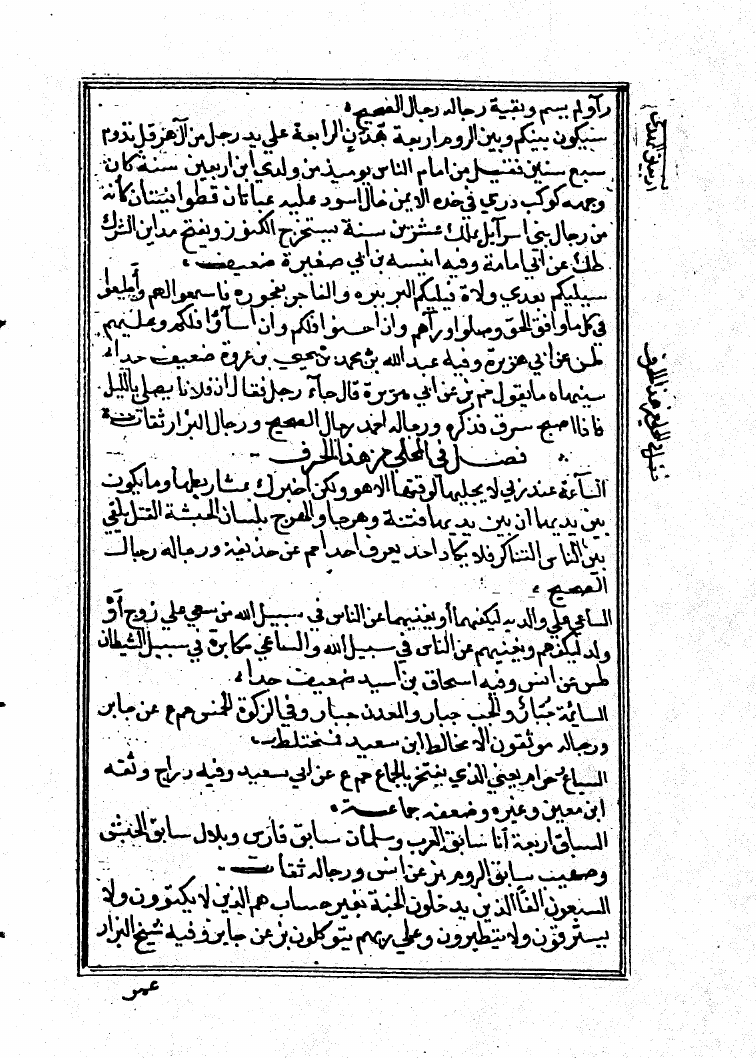 راو لم يسم وبقية رجاله رجال الصحيح
سيكون بينكم وبين الروم اربعة هدن الرابعة علي يد رجل من آل هرقل تدوم
سبع سنين فقيل من امام الناس يوميذ من ولدي ابن اربعين سنة كان
وجهه كوكب دري في خده الايمن خال اسود عليه عباتان قطوانيتان كأنه
من رجال بني اسرآيل يملك عشرين سنة يستخرج الكنوز ويفتح مداين الشرك
طك عن ابي امامة وفيه عنبسة بن ابي صغيرة ضعيف
سيليكم بعدي ولاة فيليكم البر ببره والفاجر بفجوره فاسمعوا لهم وأطيعوا
في كل ما وافق الحق وصلوا ورآهم وان احسنوا فلكم وان اسآؤا فلكم وعليهم
طس عن ابي هريرة وفيه عبد الله بن محمد بن يحيى بن عروة ضعيف جدا
سينهاه ما يقول حم بز عن ابي هريرة قال جآء رجل فقال ان فلانا يصلي بالليل
فاذا اصبح سرق فذكره ورجاله احمد رجال الصحيح ورجال البزار ثقات
فصل في المحلي من هذا الحرف
السآعة عند ربي لا يجليها لوقتها الا هو ولكن اخبرك بمشاريطها وما يكون
بين يديها ان بين يديها فتنة وهرجا والهرج بلسان الحبشة القتل يلقي
بين الناس التناكر فلا يكاد احد يعرف احدا حم عن حذيفة ورجاله رجال
الصحيح
الساعي علي والديه ليكفهما أو يغنيهما عن الناس في سبيل الله من سعي علي زوج أو
ولد ليكفهم ويغنيهم عن الناس في سبيل الله والساعي مكابرة في سبيل الشيطان
طس عن انس وفيه اسحاق بن اسيد ضعيف جدا
السائمة جبار والجب جبار والمعدن جبار وفي الركوة الخمس حم ع عن جابر
ورجاله موثقون الا مخالط ابن سعيد فختلط
السباع حرام يعني الذي يفتخر بالجماع حم ع عن ابي سعيد وفيه دراج وثقه
ابن معين وغيره وضعفه جماعة
السباق اربعة أنا سابق العرب وسلمان سابق فارس وبلال سابق الحبش
وصهيب سابق الروم بز عن انس ورجاله ثقات
السبعون الفا الذين يدخلون الجنة بغير حساب هم الذين لا يكتوون ولا
يسترقون ولا يتطيرون وعلي ربهم يتوكلون بز عن جابر وفيه شيخ البزار
فصل في المحلي من هذا الحرف
عمر